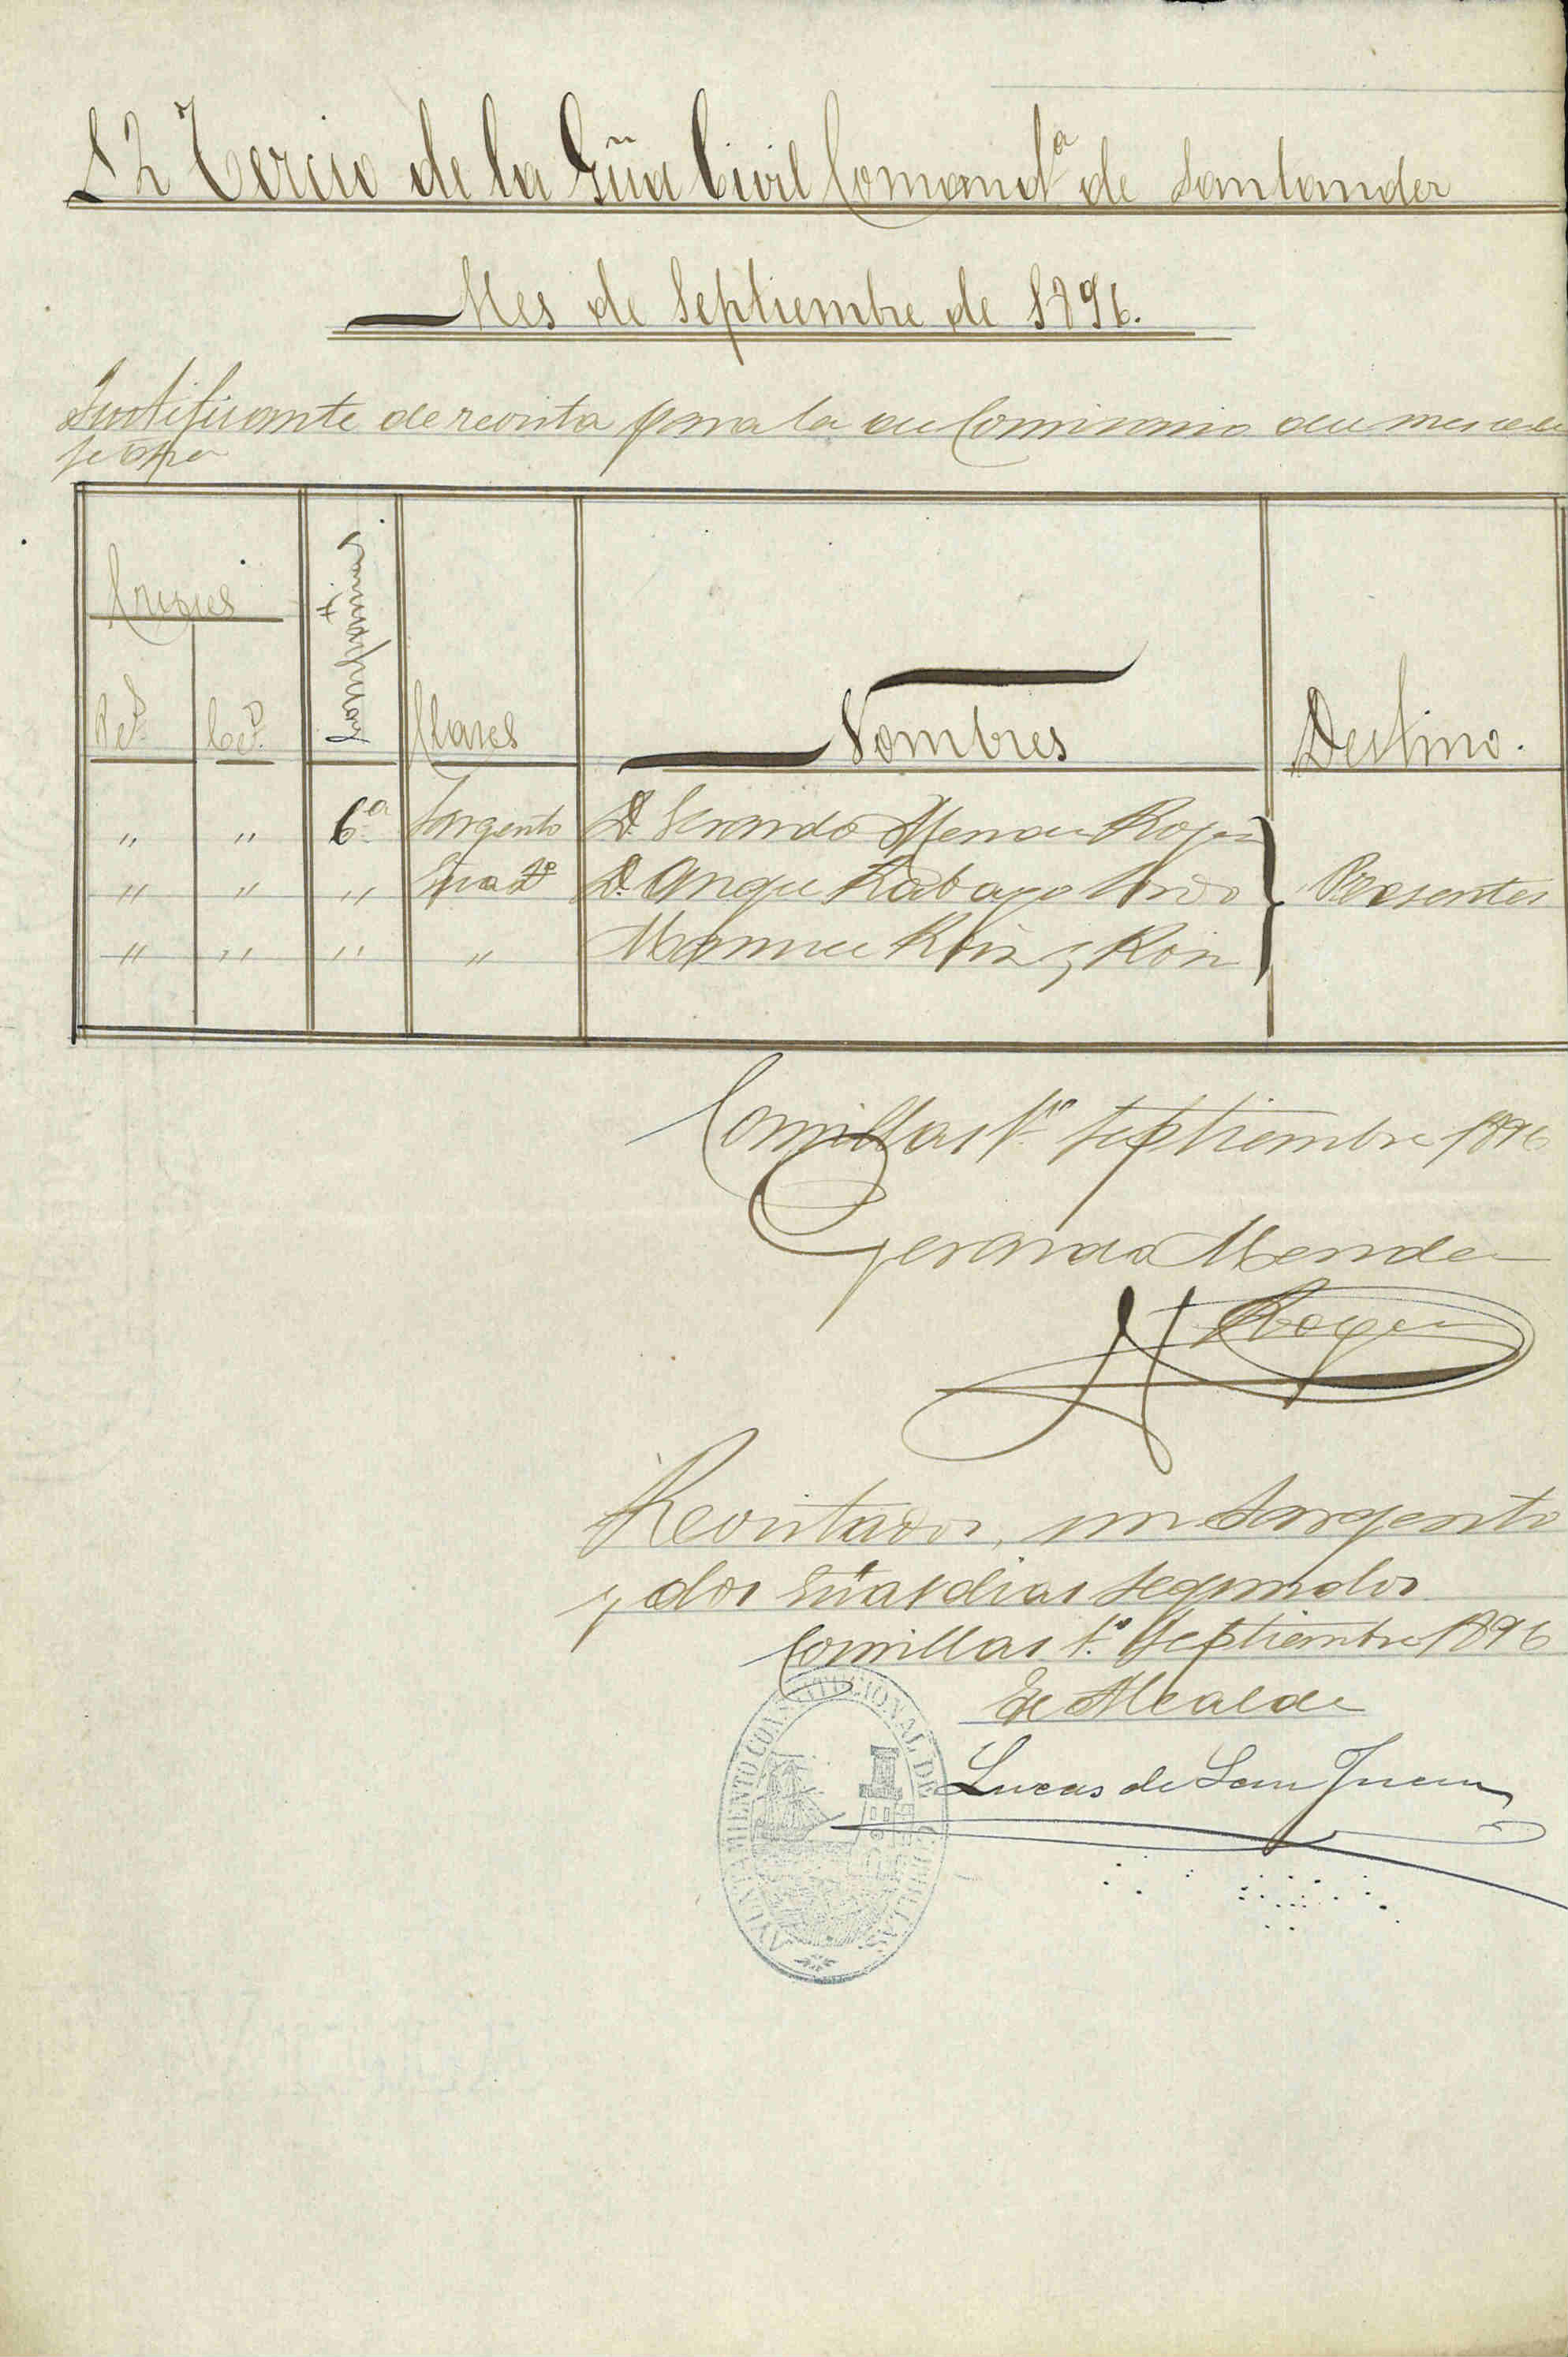 12 Tercio de la Gũa Civil Comand.ª de Santander
Mes de Septiembre de 1896.
Justificante de revista para la de Comisario del mes de
la fha
Cruces
Compañias
Clases
Nombres
Destino.
" " 6.ª Sargento D. Gerardo Mendez
" " " Gũa 2º D. Angel Rabago
" " " " Manuel Ruiz y Ruiz
Presentes
Comillas 1º Septiembre 1896
Gerardo Mendez
Revistados, un Sargento
y dos Gũardias segundos
Comillas 1.º Septiembre 1896
El Alcalde
Lucas de San Juan
AYUNTAMIENTO CONSTITUCIONAL DE COMILLAS